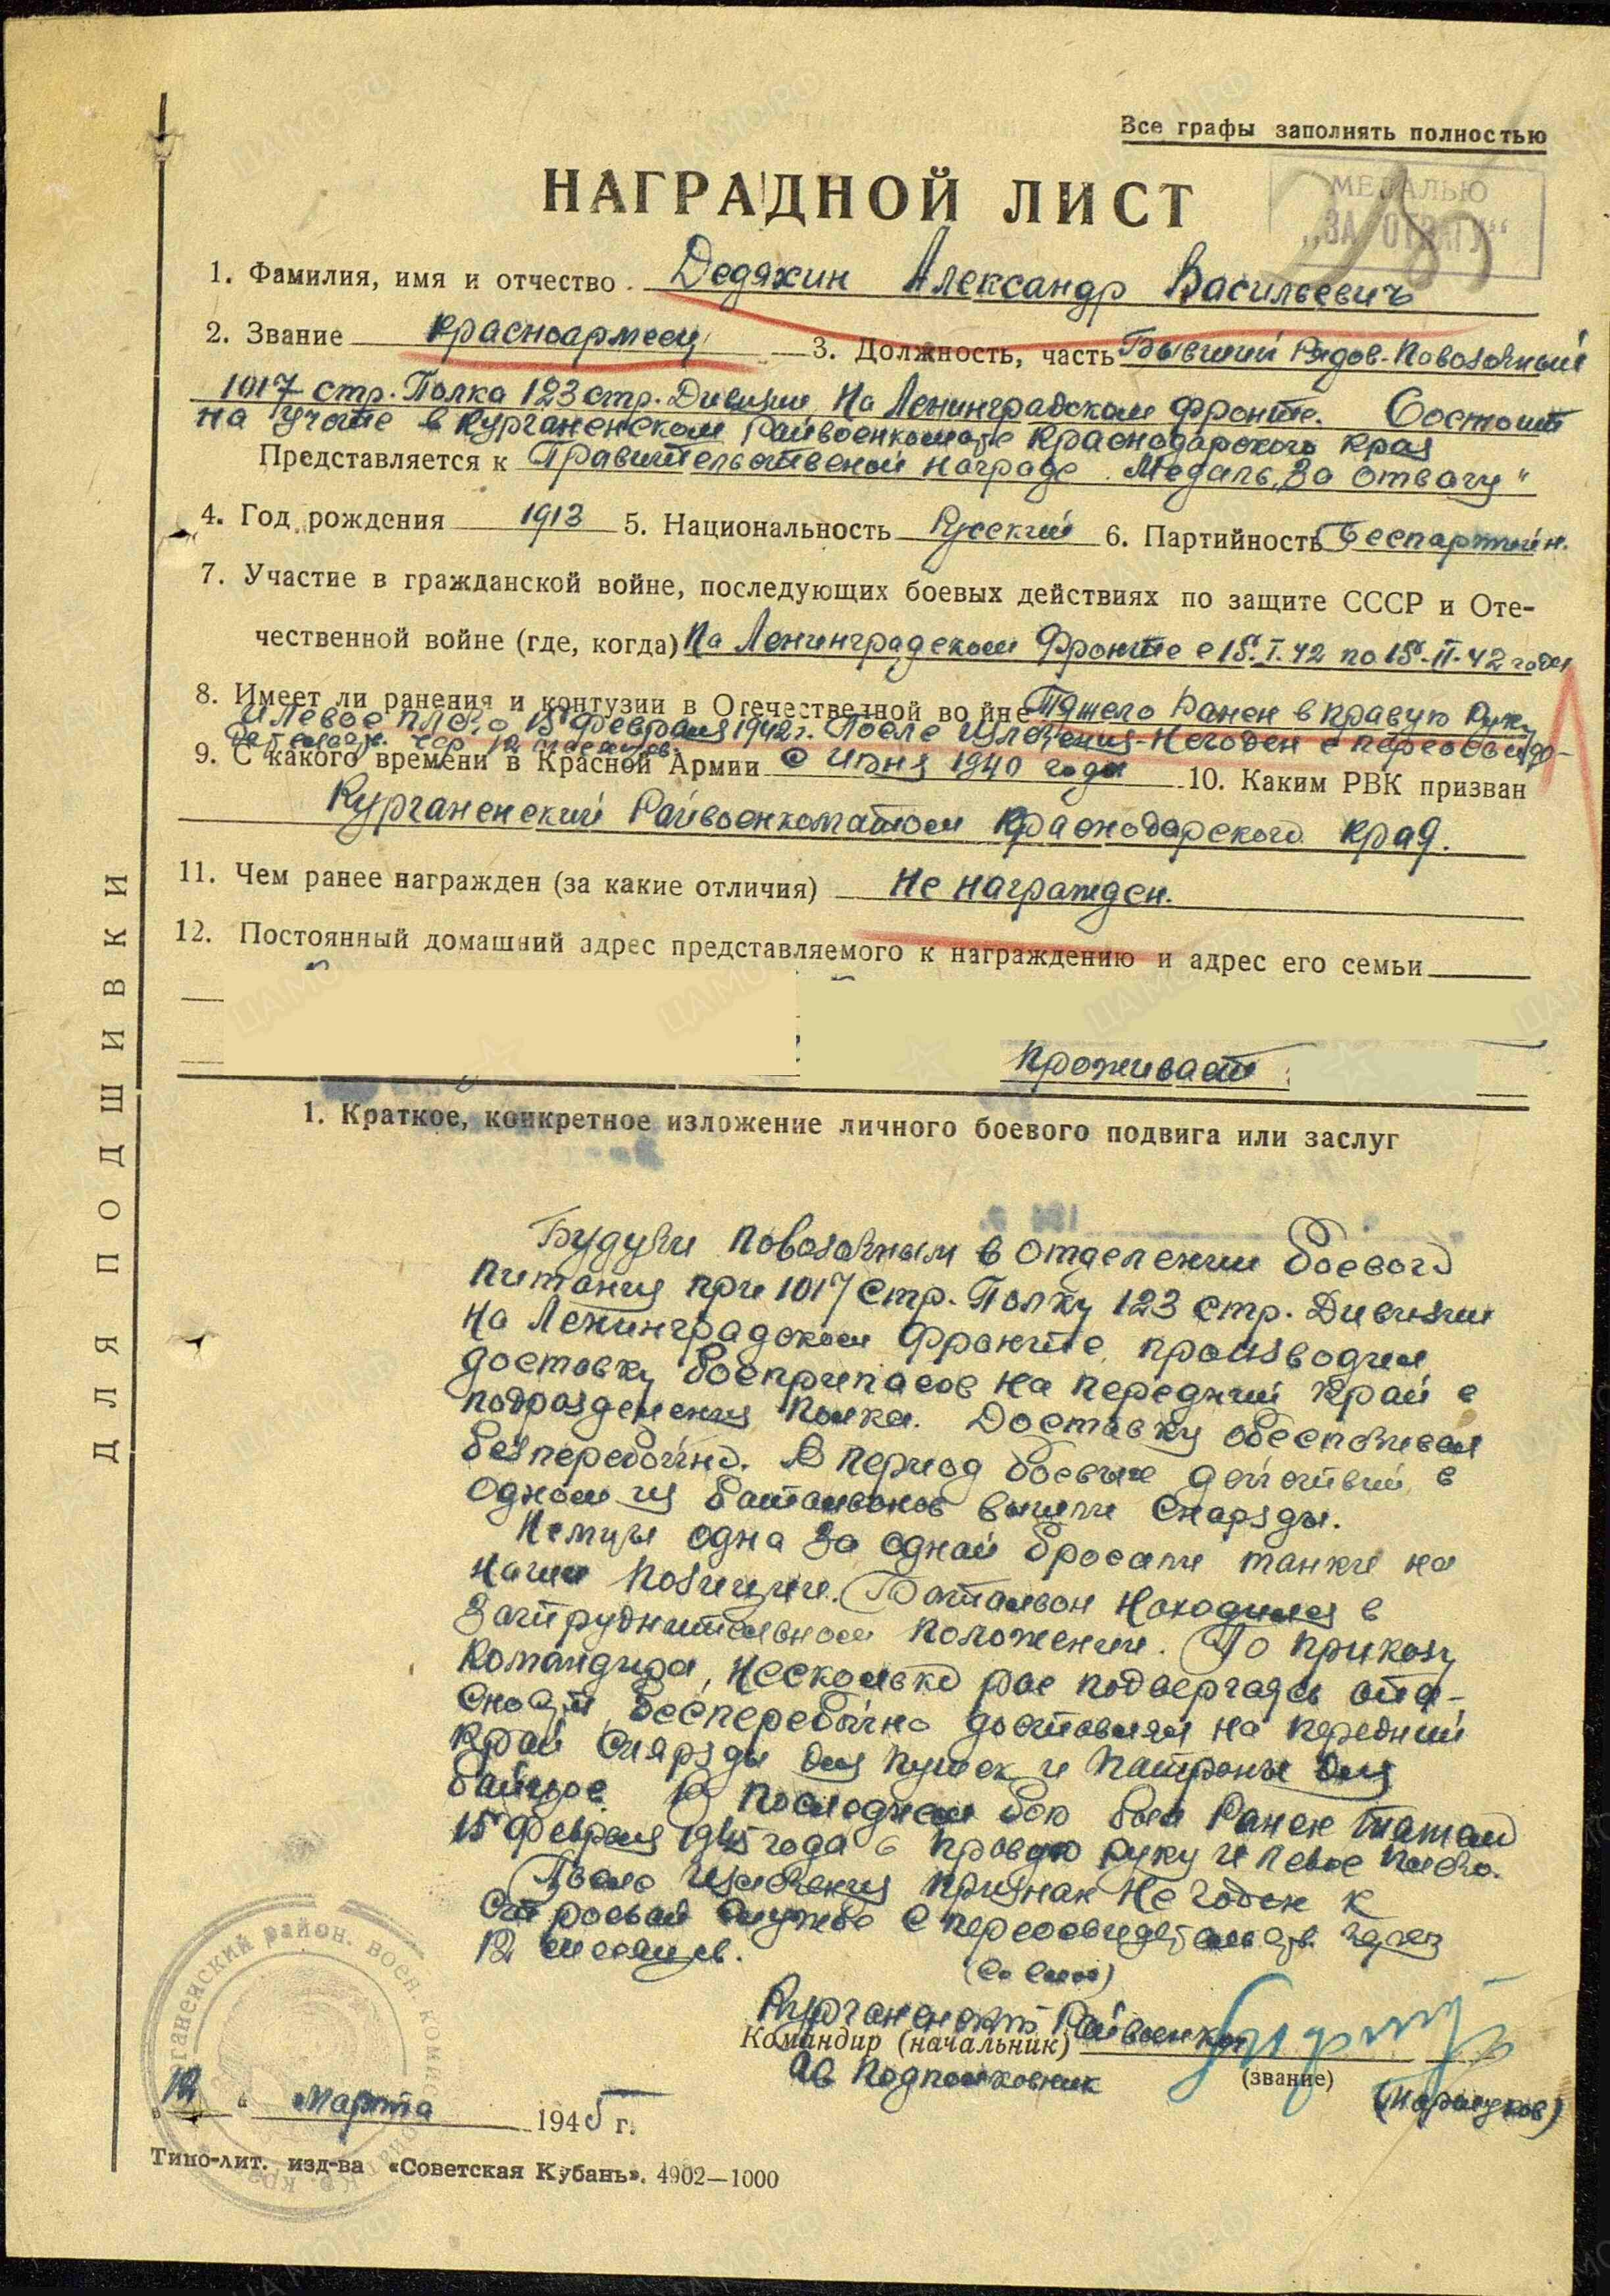 Все графы заполнять полностью
НАГРАДНОЙ ЛИСТ
МЕДАЛЬЮ
„ЗА ОТВАГУ“
1. Фамилия, имя и отчество Дедяхин Александр Васильевич
2. Звание красноармеец 3. Должность, часть Бывший Рядов-Повозочный
1017 стр. Полка 123 стр. Дивизии На Ленинградском фронте. Состоит
на учоте в Курганенском Райвоенкомате Краснодарского края
Представляется к Правительственой награде Медаль „За отвагу"
4. Год рождения 1913 5. Национальность Русский 6. Партийность Беспартийн.
7. Участие в гражданской войне, последующих боевых действиях по защите СССР и Оте-
чественной войне (где, когда) На Ленинградском Фронте с 15.I.42 по 15.II.42 года
8. Имеет ли ранения и контузии в Отечественной войне Тяжело Ранен в правую Руку
и левое плечо 15 февраля 1942 г. После излечения-Негоден с переосвиде-
12 месяцев.
9. С какого времени в Красной Армии с Июня 1940 года 10. Каким РВК призван
Курганенский Райвоенкоматом Краснодарского края.
11. Чем ранее награжден (за какие отличия) Не награжден.
12. Постоянный домашний адрес представляемого к награждению и адрес его семьи
Проживает
1. Краткое, конкретное изложение личного боевого подвига или заслуг
Будучи повозочным в отделении боевого
питания при 1017 Стр. Полку 123 стр. Дивизии
на Ленинградском фронте, производил
доставку боеприпасов на передний край в
подразделения полка. Доставку обеспечивал
безперебойно. В период боевых действий в
одном из батальонов вышли снаряды.
Немцы одна за одной бросали танки на
наши позиции. Батальон находился в
затруднительном положении. По приказу
командира, несколько рас подвергаясь опа-
сности, бесперебойно доставлял на передний
край снаряды для пушек и патроны для
бойцов. В последнем бою был Ранен танком
15 февраля 1945 года в правую руку и левое плечо.
После излечения признан не годен к
строевой службе с переосвидетельств. через
12 месяцев.
(со слов)
Курганенский Райвоенком
Командир (начальник)
Подполковник
(звание)
„12“ Марта 1945 г.
Типо-лит. изд-ва «Советская Кубань». 4902—1000
ДЛЯ ПОДШИВКИ